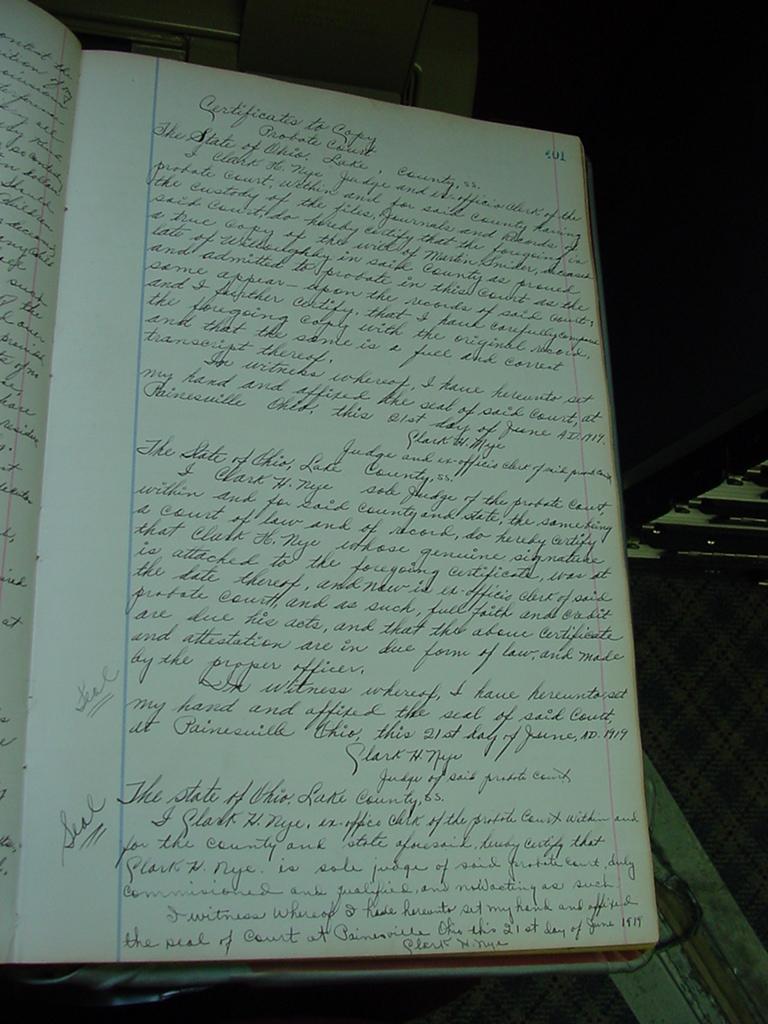 401
Certificates to Copy
Probate Court
The State of Ohio, Lake, County, ss.
I Clark H. Nye Judge and ex-officio Clerk of the
probate Court, within and for said County having
the custody of the files, Journals and Records of
said Court, do hereby Certify that the foregoing is
a true Copy of the will of Martin Snider, deceased
late of Willoughby in said County as proved
and admitted to probate in this Court as the
same appear upon the records of said Court;
and I further Certify, that I have carefully compared
the foregoing Copy with the original record,
and that the same is a full and correct
transcript thereof.
In witness whereof, I have hereunto set
my hand and affixed the seal of said Court, at
Painesville Ohio, this 21st day of June A.D. 1919.
Clark H. Nye
Judge and ex-officio Clerk of said probate Court,
The State of Ohio, Lake County, ss.
I Clark H. Nye sole Judge of the probate Court
within and for said County and State, the same being
a Court of law and of record, do hereby Certify
that Clark H. Nye whose genuine signature
is attached to the foregoing Certificate, was at
the date thereof, and now is ex-officio Clerk of said
probate Court, and as such, full faith and credit
are due his acts, and that the above Certificate
and attestation are in due form of law, and made
by the proper officer.
Seal
In Witness whereof, I have hereunto set
my hand and affixed the seal of said Court,
at Painesville Ohio, this 21st day of June, A.D. 1919
Clark H. Nye
Judge of said probate Court,
Seal
The State of Ohio, Lake County, ss.
I Clark H. Nye, ex-offico clerk of the probate Court within and
for the county and state aforesaid, hereby certify that
Clark H. Nye. is sole judge of said probate court, duly
commisioned and qualified, and now acting as such
I witness Whereof I have hereunto set my hand and affixed
the seal of Court at Painesville Ohio this 21st day of June 1919
Clark H Nye